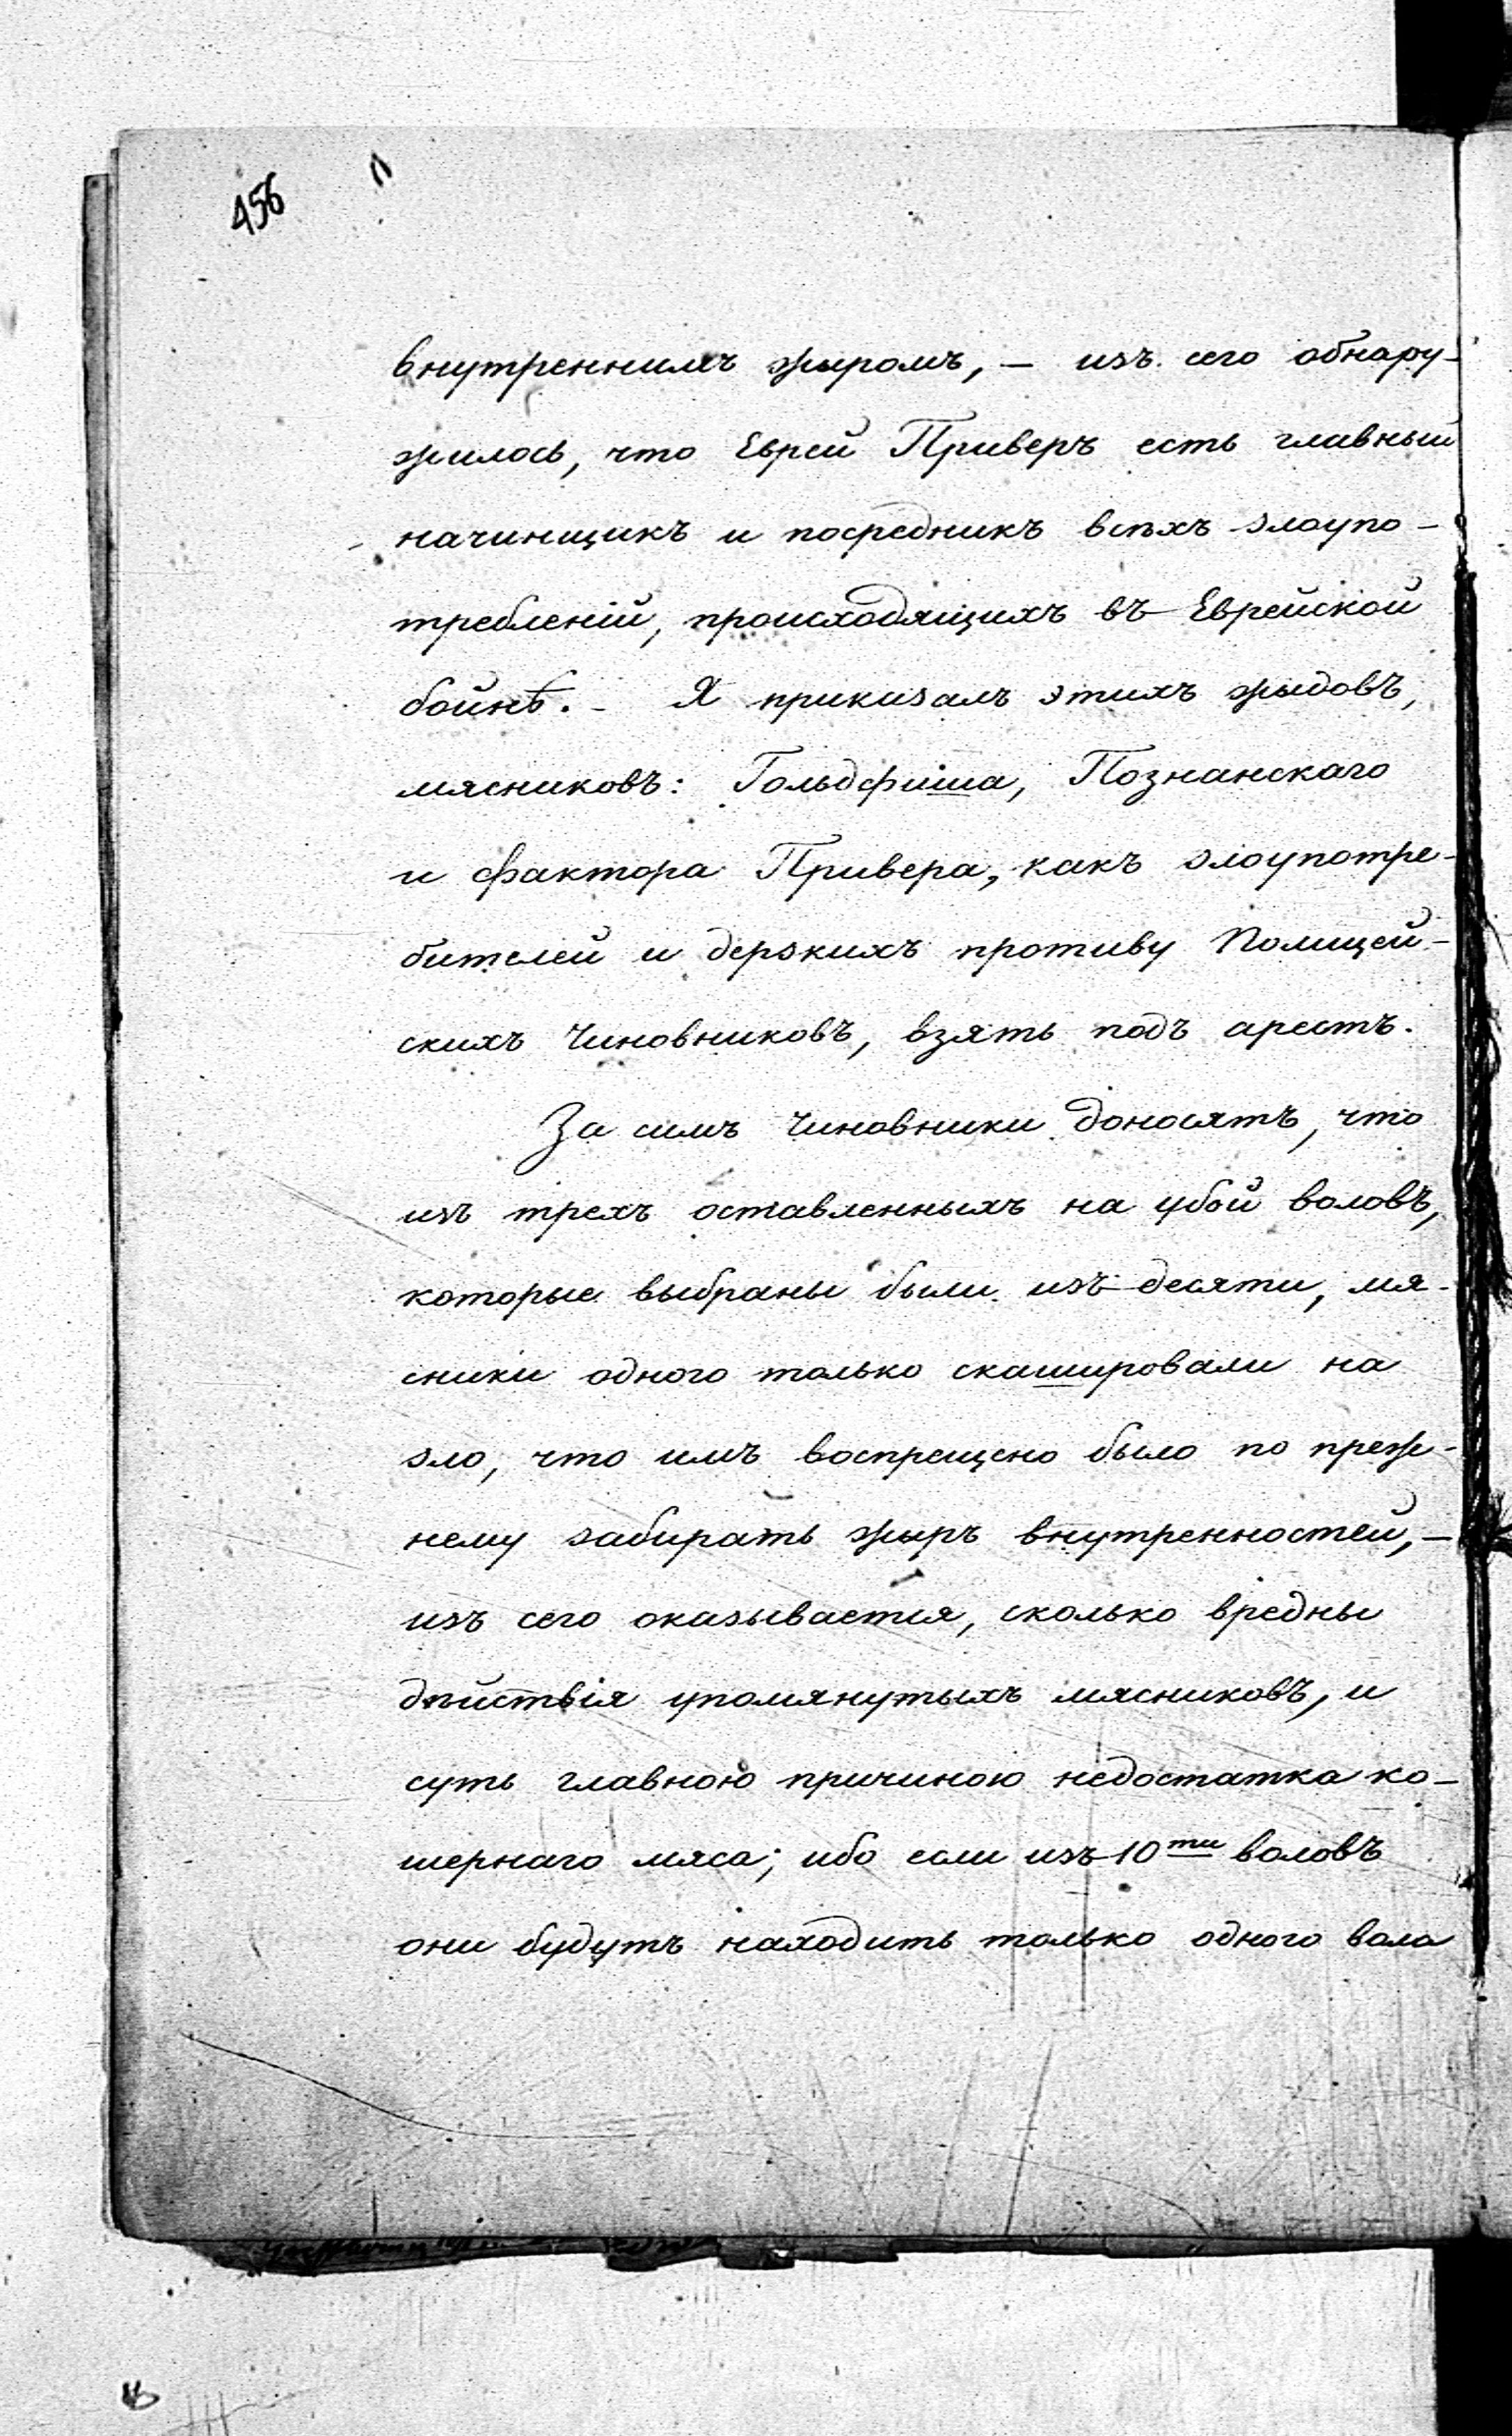 456
внутреннимъ жыромъ, – изъ сего обнару-
жилось, что Еврей Приверъ есть главный
начинщикъ и посредникъ всѣхъ злоупо-
требленій, происходящихъ въ Еврейской
бойнѣ. – Я приказалъ этихъ жыдовъ,
мясниковъ: Гольдфиша, Познанскаго
и фактора Привера, какъ злоупотре-
бителей и дерзкихъ противу Полицей-
скихъ Чиновниковъ, взять подъ арестъ.
За симъ Чиновники доносятъ, что
изъ трехъ оставленныхъ на убой воловъ,
которые выбраны были изъ десяти, мя-
сники одного только скашировали на
зло, что имъ воспрещено было по преж-
нему забирать жыръ внутренностей, –
изъ сего оказывается, сколько вредны
дѣйствія упомянутыхъ мясниковъ, и
суть главною причиною недостатка ко-
шернаго мяса; ибо если изъ 10ти воловъ
они будутъ находить только одного вола